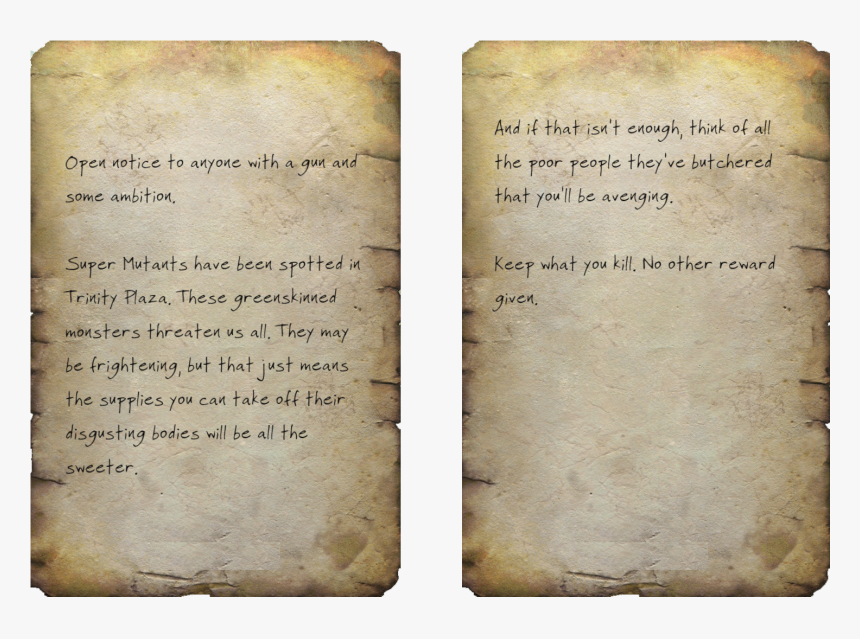 Open notice to anyone with a gun and
some ambition.
Super Mutants have been spotted in
Trinity Plaza. These greenskinned
monsters threaten us all. They may
be frightening, but that just means
the supplies you can take off their
disgusting bodies will be all the
sweeter.
And if that isn't enough, think of all
the poor people they've butchered
that you'll be avenging.
Keep what you kill. No other reward
given.